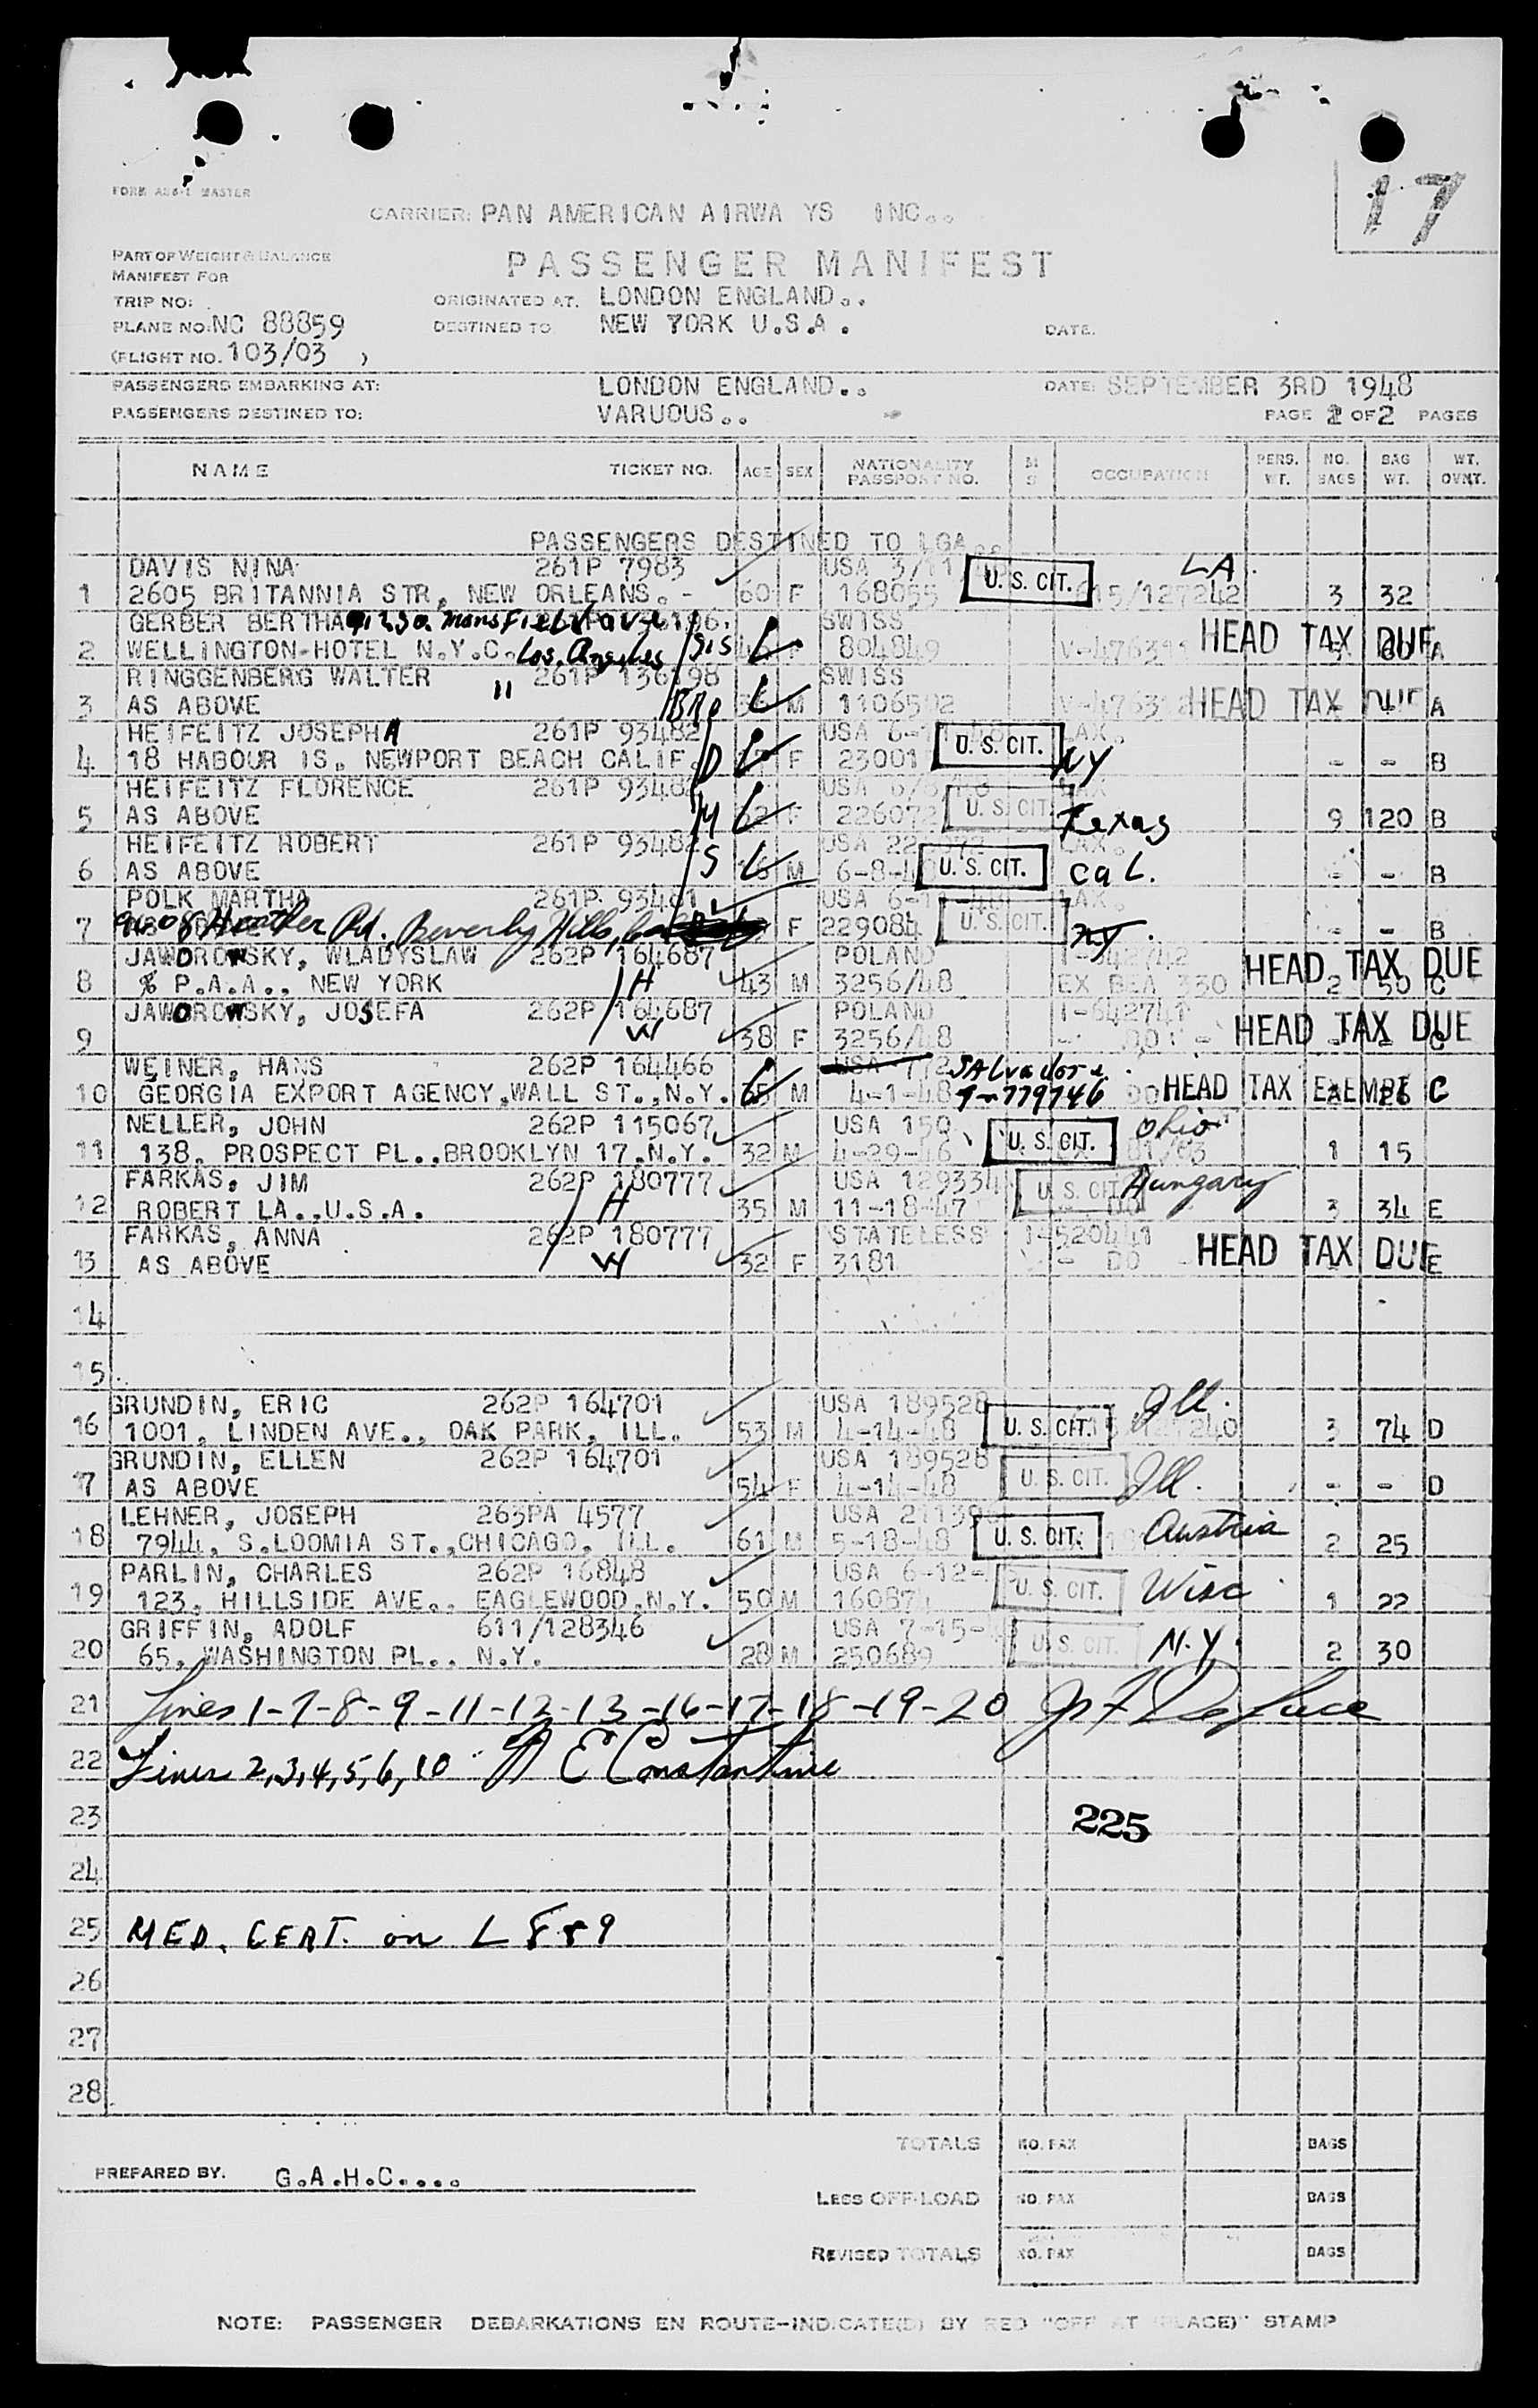 17
FORM MASTER
CARRIER: PAN AMERICAN AIRWA YS INC..
PART OF WEIGHT & BALANCE
MANIFEST FOR
PASSENGER MANIFEST
TRIP NO:
ORIGINATED AT. LONDON ENGLAND..
PLANE NO: NC 88859
DESTINED TO NEW YORK U.S.A.
DATE.
(FLIGHT NO. 103/03 )
PASSENGERS EMBARKING AT: LONDON ENGLAND.. DATE: SEPTEMBER 3RD 1948
PASSENGERS DESTINED TO: VARUOUS.. PAGE 2 OF 2 PAGES
NAME TICKET NO. AGE SEX NATIONALITY PASSPORT NO. M S OCCUPATION PERS. WT. NO. BAGS BAG WT. WT. OVNT.
PASSENGERS DESTINED TO LGA..
DAVIS NINA 261P 7983 USA 3/11 U. S. CIT. LA.
1 2605 BRITANNIA STR, NEW ORLEANS. - 60 F 168055 615/127242 3 32
GERBER BERTHA Mansfield ave SWISS
2 WELLINGTON-HOTEL N.Y.C. Los. Angeles Sis 804849 HEAD TAX DUE A
RINGGENBERG WALTER " 261P 136198 SWISS
3 AS ABOVE Bro M HEAD TAX DUE A
HEIFEITZ JOSEPHA 261P 93482 USA U. S. CIT. LAX.
4 18 HABOUR IS. NEWPORT BEACH CALIF. D F 23001 NY - - B
HEIFEITZ FLORENCE 261P 9348 USA U. S. CIT. LAX
5 AS ABOVE M F 226072 Texas 9 120 B
HEIFEITZ ROBERT 261P 93482 USA U. S. CIT. LAX.
6 AS ABOVE S 16 M 6-8-4 Cal. - - B
POLK MARTHA 261P. 93481 USA U. S. CIT. LAX.
7 Heather Rd. Beverly Hills, F 229084 NY. - - B
JAWOROWSKY, WLADYSLAW 262P 164687 POLAND HEAD TAX DUE
8 % P.A.A., NEW YORK H 43 M 3256/48 EX BEA 330 2 50 C
JAWOROWSKY, JOSEFA 262P 164687 POLAND 1-642741
9 W 38 F 3256/48 - DO - HEAD TAX DUE C
WEINER, HANS 262P 164466 USA 772 Salvadore
10 GEORGIA EXPORT AGENCY,WALL ST.,N.Y. 65 M 4-1-48 T-779746 DO HEAD TAX EXEMPT C
NELLER, JOHN 262P 115067 USA 150 U. S. CIT. Ohio
11 138, PROSPECT PL.,BROOKLYN 17,N.Y. 32 M 4-29-46 1 15
FARKAS, JIM 262P 180777 USA 129334 U. S. CIT. Hungary
12 ROBERT LA.,U.S.A. H 35 M 11-18-47 DO 3 34 E
FARKAS, ANNA 262P 180777 STATELESS 1-520441
13 AS ABOVE W 32 F 3181 - DO - HEAD TAX DUE E
14
15
GRUNDIN, ERIC 262P 164701 USA 189528 Ill.
16 1001, LINDEN AVE., OAK PARK, ILL. 53 M 4-14-48 U. S. CIT. 3 74 D
GRUNDIN, ELLEN 262P 164701 USA 189528
17 AS ABOVE 54 F 4-14-48 U. S. CIT. Ill. - - D
LEHNER, JOSEPH 263PA 4577 USA
18 7944, S.LOOMIA ST.,CHICAGO, ILL. 61 M 5-18-48 U. S. CIT. Austria 2 25
PARLIN, CHARLES 262P 16848 USA 6-12-
19 123, HILLSIDE AVE., EAGLEWOOD,N.Y. 50 M 16087 U. S. CIT. Wisc 1 22
GRIFFIN, ADOLF 611/128346 USA 7-15-
20 65, WASHINGTON PL., N.Y. 28 M 250689 U. S. CIT. N.Y. 2 30
21 Lines 1-7-8-9-11-12-13-16-17-18-19-20
22 Lines 2,3,4,5,6,10 E Constantine
23 225
24
25 MED. CERT. on L 889
26
27
28
TOTALS NO. PAX BAGS
PREPARED BY. G.A.H.C....
LESS OFF-LOAD NO. PAX BAGS
REVISED TOTALS NO. PAX BAGS
NOTE: PASSENGER DEBARKATIONS EN ROUTE-INDICATE(D) BY RED "OFF AT (PLACE)" STAMP